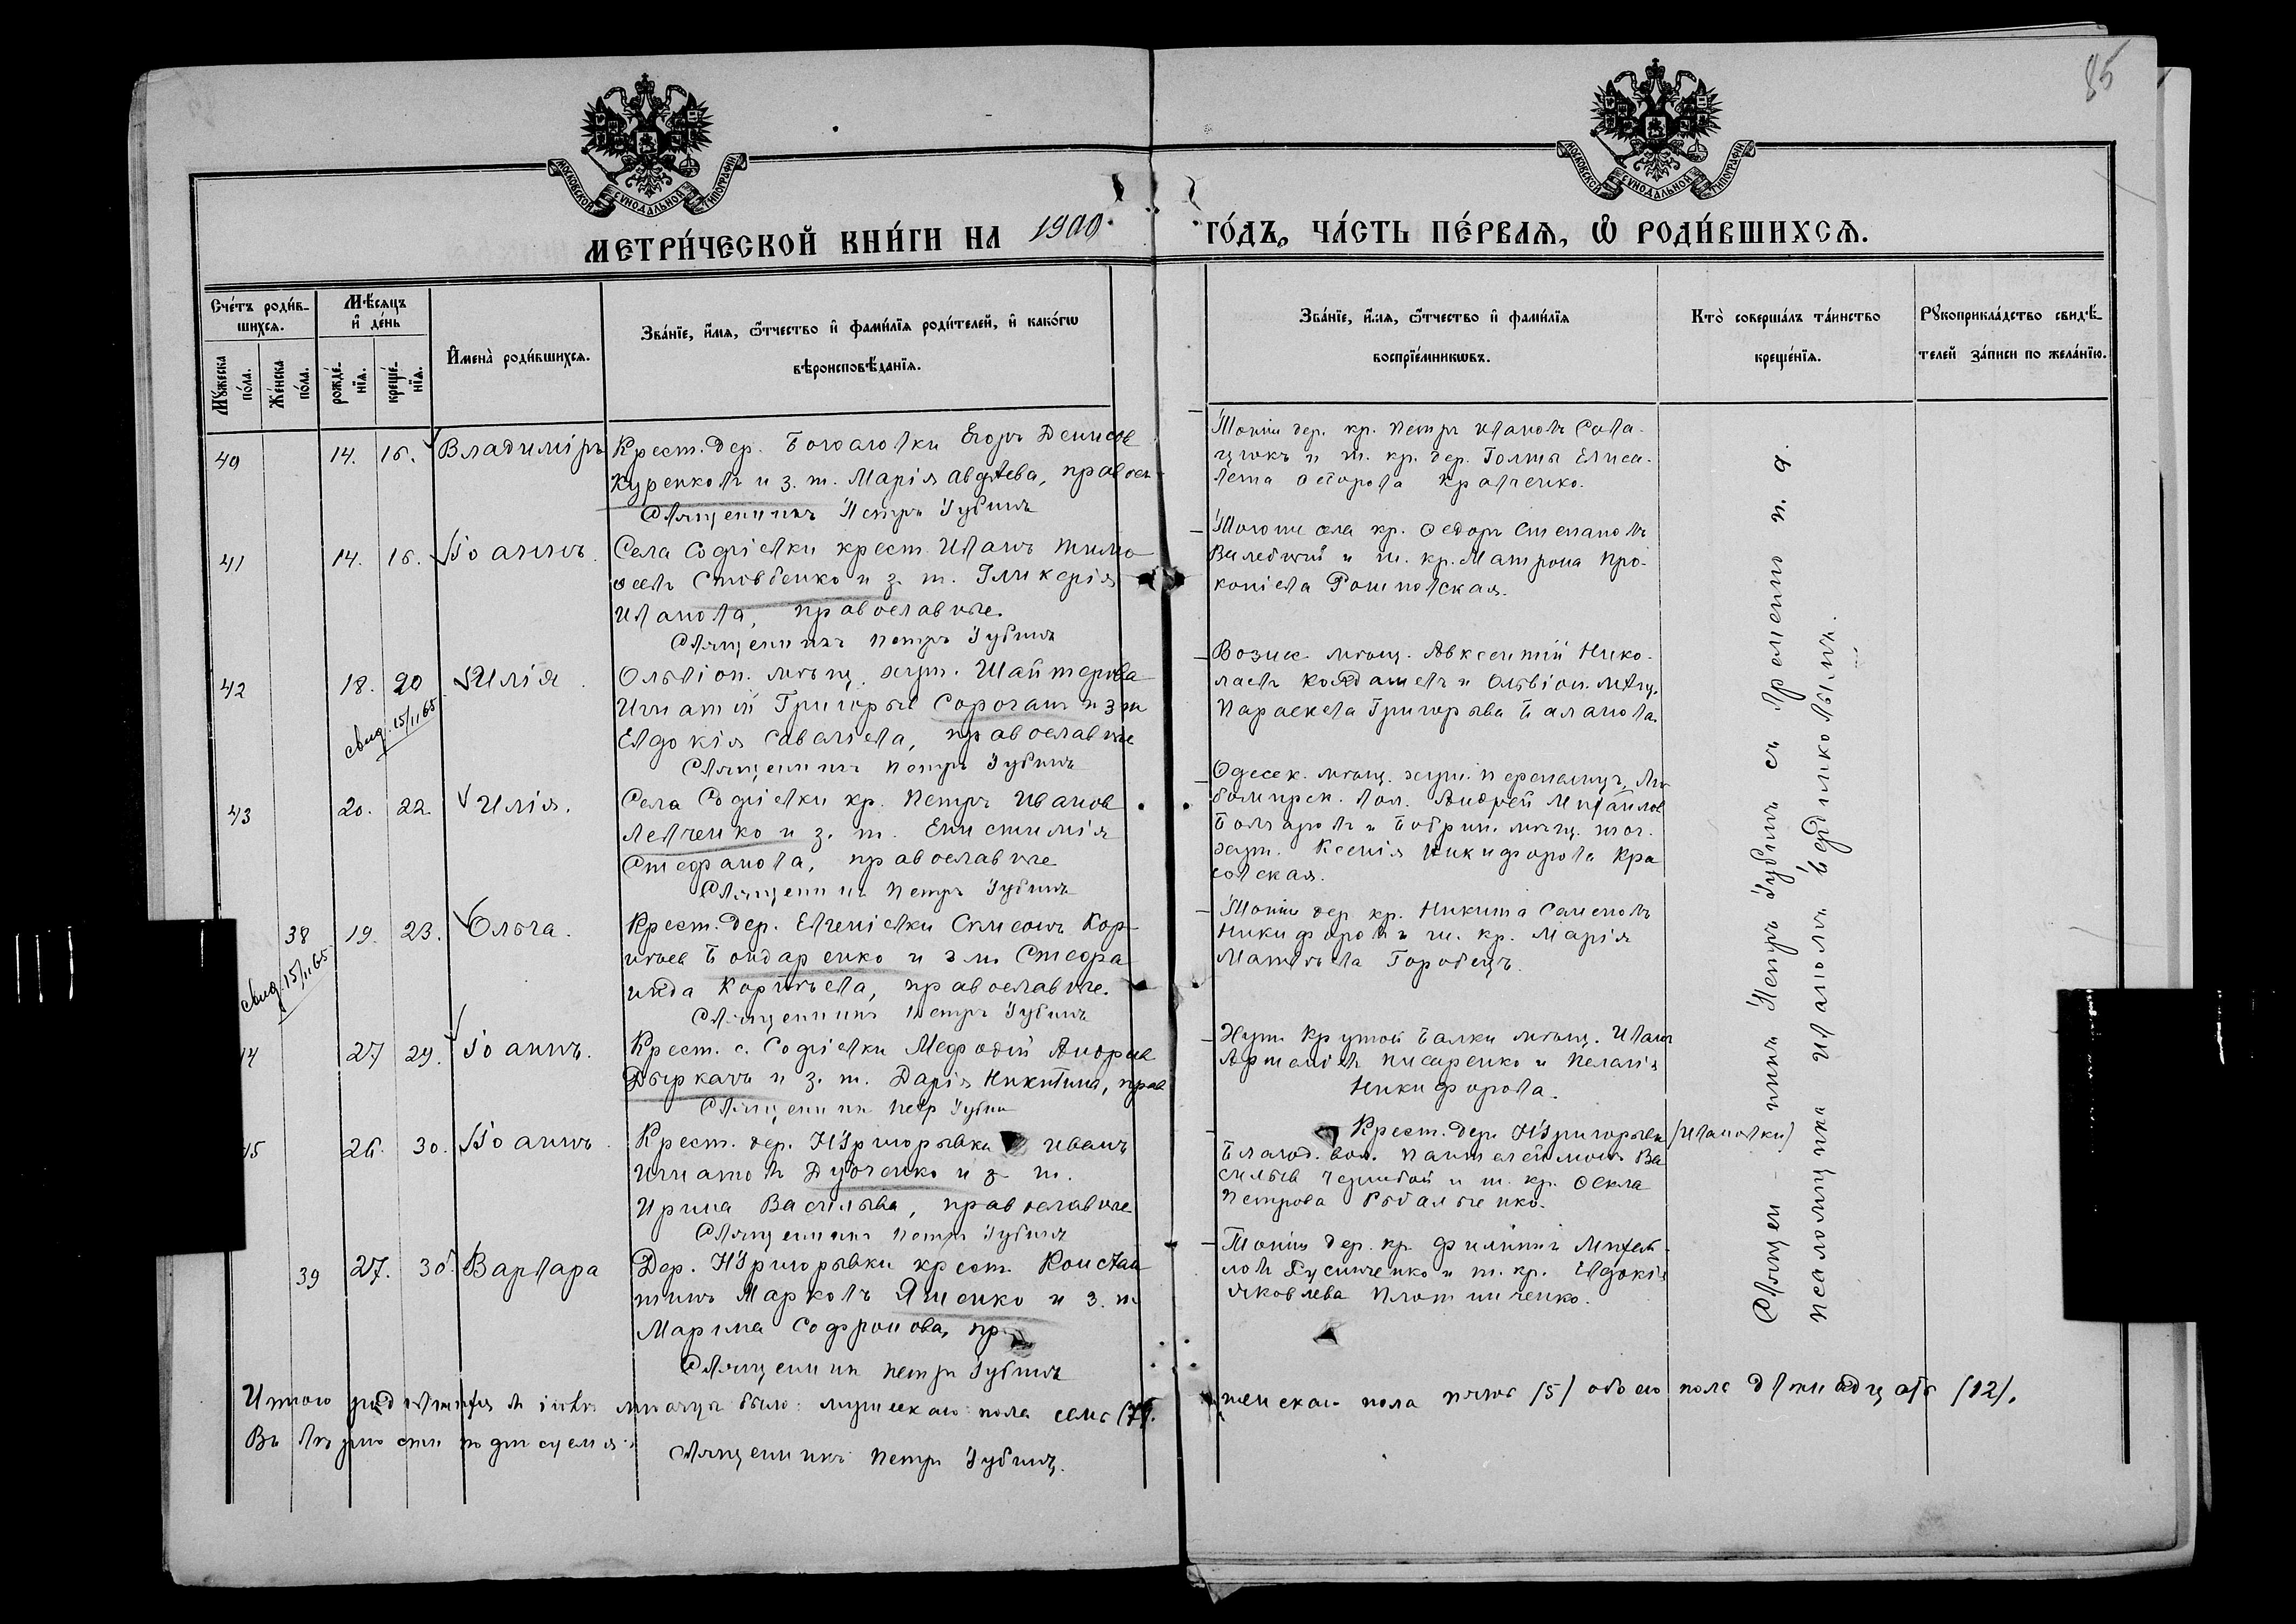 85
МОСКОВСКОЙ СѴНОДАЛЬНОЙ ТИПОГРАФІИ
МОСКОВСКОЙ СѴНОДАЛЬНОЙ ТИПОГРАФІИ
МЕТРИ́ЧЕСКОЙ КНИ́ГИ НА 1900 ГО́ДЪ, ЧА́СТЬ ПЕ́РВАѦ, Ѡ РОДИ́ВШИХСѦ.
Сче́тъ роди́в-
шихсѧ.
Мꙋ́жеска по́ла.
Же́нска по́ла.
Мѣ́сѧцъ
и҆ де́нь
рожде́нїѧ.
креще́нїѧ.
И҆мена̀ роди́вшихсѧ.
Зва́нїе, и҆́мѧ, ѻ҆́тчество и҆ фами́лїѧ роди́телей, и҆ како́гѡ
вѣроисповѣ́данїѧ.
Зва́нїе, и҆́мѧ, ѻ҆́тчество и҆ фами́лїѧ
воспрїе́мникѡвъ.
Кто̀ соверша́лъ та́инство
креще́нїѧ.
Рꙋкоприкла́дство свидѣ́-
телей за́писи по жела́нїю.
40 14. 16. Владиміръ
Крест. дер. Егоръ Денисов
Куренковъ и з. ж. Марія Авдѣева, правосл
Священникъ Петръ Губинъ
Тойже дер. кр. Петръ Ивановъ
и ж. кр. дер. Голмы Елиса-
вета Ѳедорова Кравченко.
41 14. 16. Іоаннъ.
Села Софіевки крест. Иванъ Тимо-
ѳеевъ Стовбенко и з. ж. Гликерія
Иванова, православные.
Священникъ Петръ Губинъ
Тогоже села кр. Ѳедоръ Степановъ
и ж. кр. Матрона Про-
копіева
42 18. 20 Илія.
свид. 15/II 65
Ольвіоп. мѣщ. хут. Шайтерова
Игнатій Григорьев Сорочан и з ж
Евдокія Саватіева, православные
Священникъ Петръ Губинъ
Вознес. мѣщ. Авксентій Нико-
лаевъ и Ольвіоп. мѣщ.
Параскева Григорьева Баланова.
43 20. 22. Илія.
Села Софіевки кр. Петръ Иванов
Левченко и з. ж. Епистимія
Стефанова, православные
Священникъ Петръ Губинъ
Одесск. мѣщ. хут. Лю-
бомирск. вол. Андрей Михайлов
Болгаровъ и Бобрин. мѣщ. тог.
хут. Ксенія Никифорова Кра
совская.
38 19. 23. Ольга.
свид. 15/II 65
Крест. дер. Евгеніевки Симеонъ Кор-
нѣев Бондаренко и з ж. Стефа
нида Корнѣева, православные.
Священникъ Петръ Губинъ
Тойже дер. кр. Никита Саменовъ
Никифоровъ и ж. кр. Марія
Матвѣева Горобецъ.
27 29. Іоаннъ.
Крест. с. Софіевки Меѳодій Андрѣев
Дыркачъ и з. ж. Дарія Никитина, прав
Священник Петр Губин
Хут. Крутой Балки мѣщ. Иван
Артеміевъ Писаренко и Пелагія
Никифорова.
26. 30. Іоаннъ.
Крест. дер. Н Григорьевки Иванъ
Игнатовъ Дубченко и з ж.
Ирина Васильева, православные
Священникъ Петръ Губинъ
Крест. дер. Н Григорьевки (Ивановки)
Благод. вол. Пантелеймонъ Ва
сильев и ж. кр. Ѳекла
Петрова Рыбальченко.
39 27. 30. Варвара
Дер. Н Григорьевки крест. Констан-
тинъ Марковъ Яценко и з. ж
Марина Софронова, пр
Священник Петръ Губинъ
Тойже дер. кр. Филиппъ
и ж. кр. Евдокія
Яковлева Плотниченко.
Священникъ Петръ Губинъ съ временно и. д.
псаломщика Иваномъ
Итого родившихся въ іюлѣ мѣсяцѣ было: мужескаго пола семь (7). женскаго пола пять (5) обоего пола двѣнадцать (12).
Въ вѣрности подписуемся:
Священникъ Петръ Губинъ.